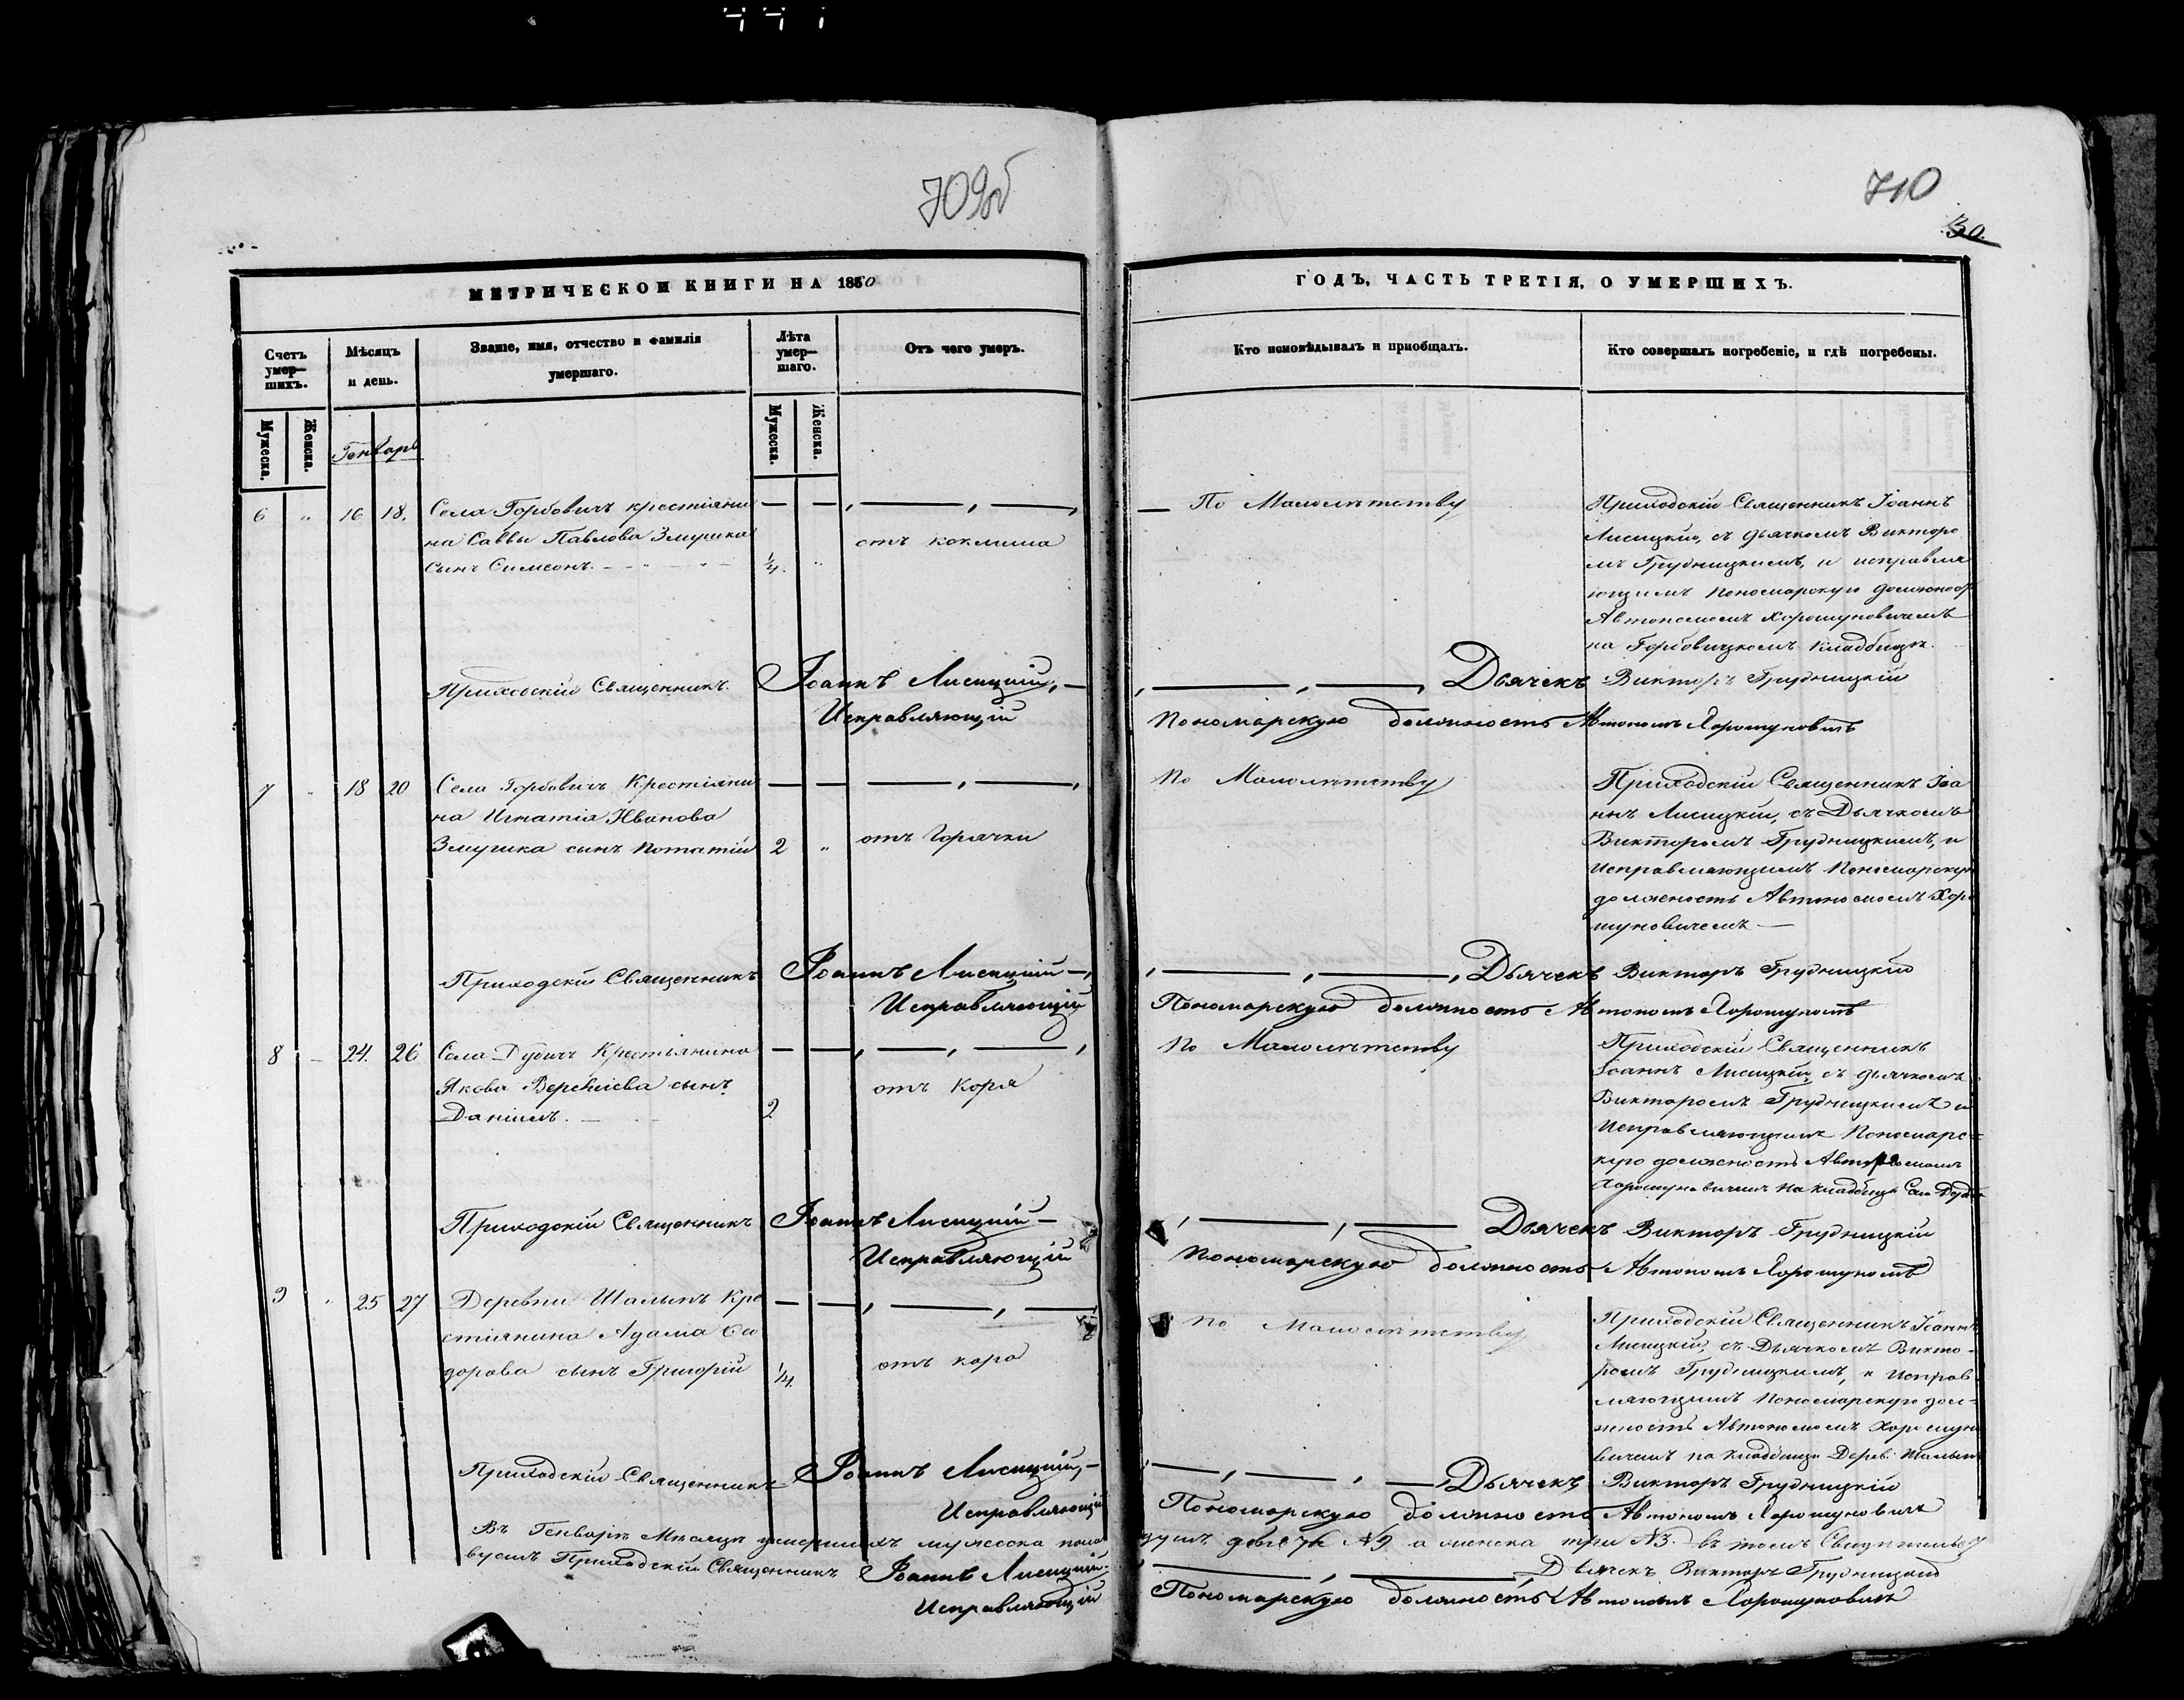 709об
710
30.
МЕТРИЧЕСКОЙ КНИГИ НА 1850
ГОДЪ, ЧАСТЬ ТРЕТІЯ, О УМЕРШИХЪ.
Счетъ умер— шихъ.
Мѣсяцъ и день.
Званіе, имя, отчество и фамилія умершаго.
Лѣта умер— шаго.
Отъ чего умеръ.
Кто исповѣдывалъ и пріобщалъ.
Кто совершалъ погребеніе, и гдѣ погребены.
Мужеска.
Женска.
Генварь
Мужеска.
Женска.
6 " 16 18.
Села Горбовичъ крестіяни
на Саввы Павлова Змушка
сынъ Симеонъ.
1/4. "
отъ коклюша
По Малолѣтству
Приходскій Священникъ Іоаннъ
Лисицкій, съ дьячкомъ Викторо
мъ Грудницкимъ, и исправля
ющимъ пономарскую должност
Автономомъ Хорошуновичемъ
на Горбовицкомъ кладбищѣ.
Приходскій Священникъ Іоаннъ Лисицкій, Дьячекъ Викторъ Грудницкій
Исправляющій Пономарскую должность Автономъ Хорошуновичъ
7 " 18 20
Села Горбовичъ Крестіяни
на Игнатія Иванова
Змушка сынъ Потапій
2 "
отъ Горячки
По Малолѣтству
Приходскій Священникъ Іоа
ннъ Лисицкій, съ Дьячкомъ
Викторомъ Грудницкимъ, и
исправляющимъ Пономарскую
должность Автономомъ Хоро
шуновичемъ —
Приходскій Священникъ Іоаннъ Лисицкій —, Дьячекъ Викторъ Грудницкій
Исправляющій Пономарскую должность Автономъ
8 — 24. 26
Села Дубичъ Крестьянина
Якова сынъ
Даніилъ.
2
отъ Коря
По Малолѣтству
Приходскій Священникъ
Іоаннъ Лисицкій, съ дьячкомъ
Викторомъ Грудницкимъ и
Исправляющимъ Пономарс-
кую должность
Хорошуновичемъ на кладбищѣ
Приходскій Священникъ Іоаннъ Лисицкій — Дьячекъ Викторъ Грудницкій
Исправляющій Пономарскую должность Автономъ
9 " 25 27
Деревни Шалыпъ Кре
стіянина Адама Си
дорова сынъ Григорій
1/4.
отъ коро
По Малолѣтству
Приходскій Священникъ Іоаннъ
Лисицкій, съ Дьячкомъ Викто-
ромъ Грудницкимъ, и исправ
ляющимъ Пономарскую дол-
жность Автономомъ Хорошуно
вичемъ на кладбищѣ Дерев:
Приходскій Священникъ Іоаннъ Лисицкій, — Дьячекъ Викторъ Грудницкій
Исправляющій Пономарскую должность Автономъ Хорошуновичъ
Въ Генварѣ Мѣсяцѣ умершихъ мужеска пола №9 а женска три №3. въ томъ Свидѣтельст
вуемъ Приходскій Священникъ Іоаннъ Лисицкій Дьячекъ Викторъ Грудницкій
Исправляющій Пономарскую должность Автономъ Хорошуновичъ